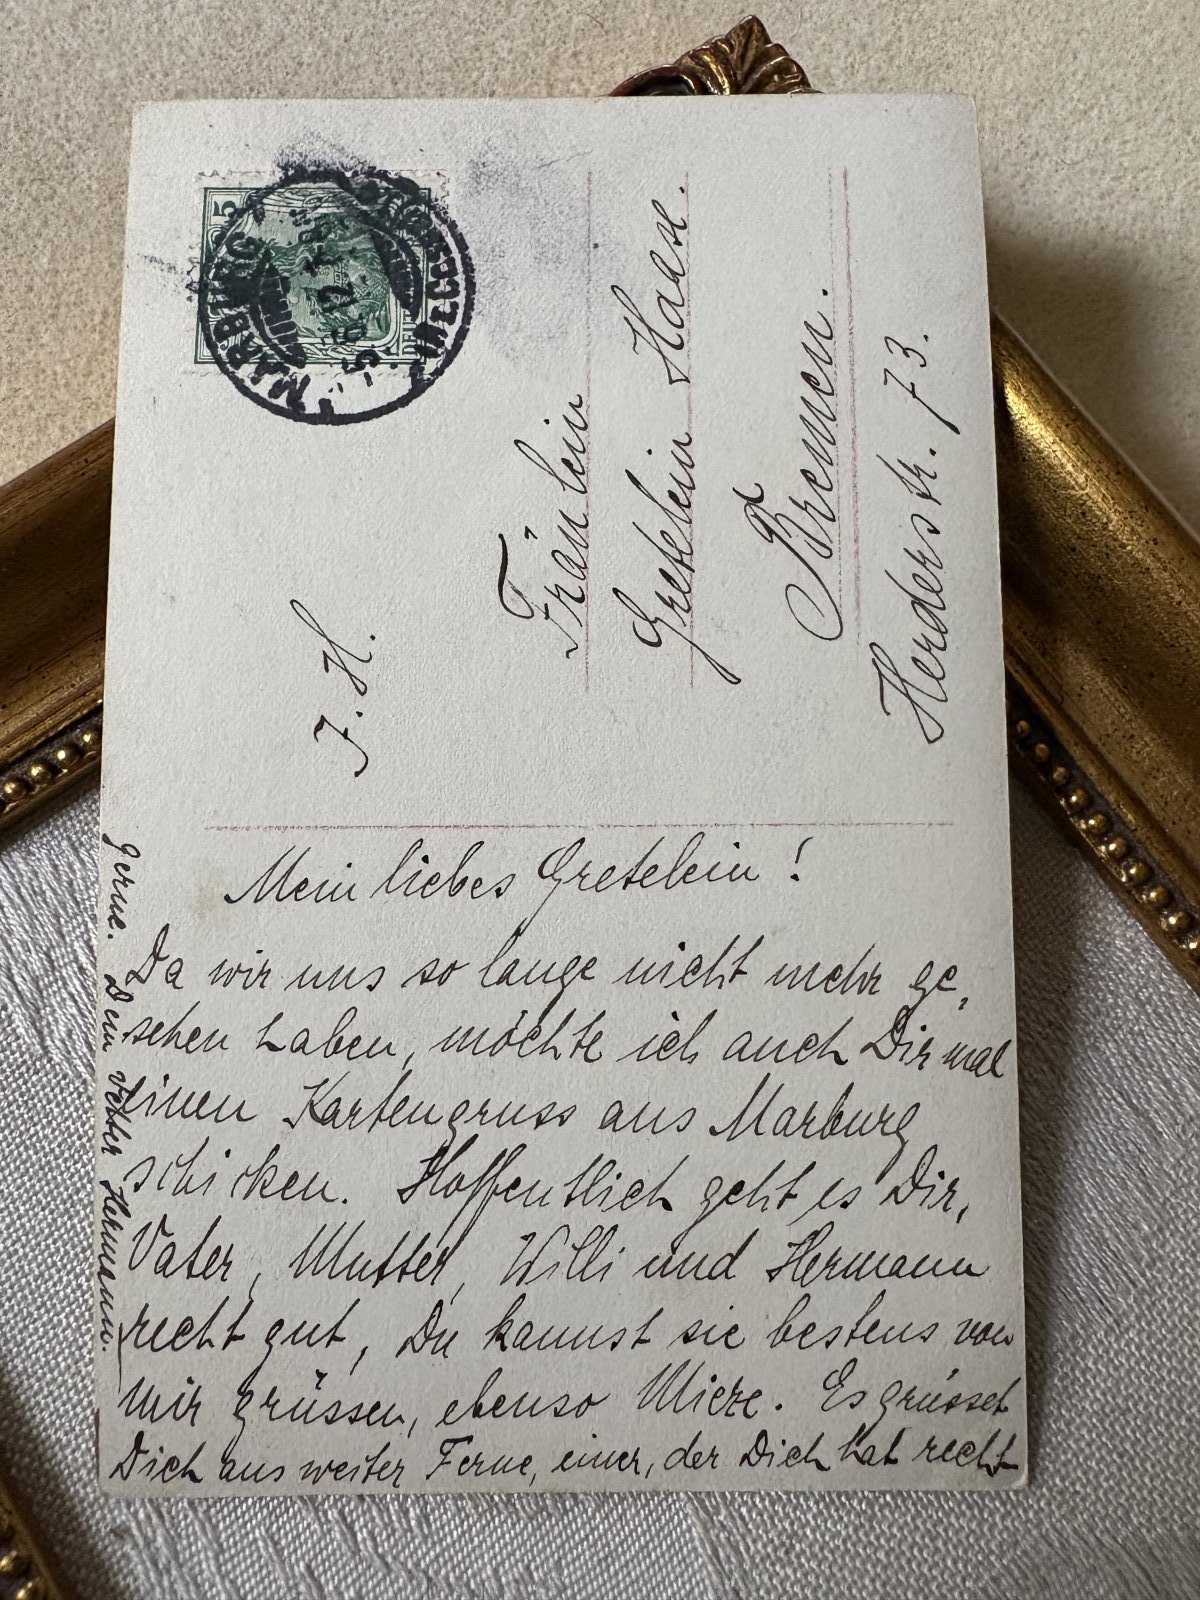 5
MARBURG
5.8.12.
F. H.
Fräulein
Gretelein Haase.
Bremen.
Herderstr. 73.
Mein liebes Gretelein!
Da wir uns so lange nicht mehr ge,
sehen haben, möchte ich auch Dir mal
einen Kartengruss aus Marburg
schicken. Hoffentlich geht es Dir,
Vater, Mutter, Willi und Hermann
recht gut, Du kannst sie bestens von
mir grüssen, ebenso Mieze. Es grüsset
Dich aus weiter Ferne, einer, der Dich hat recht
gerne. Dein Vetter Hermann.